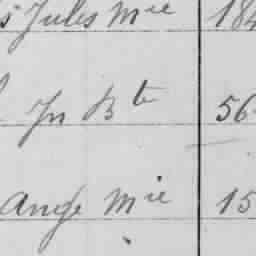 Jules Mie 184
Jn Bte 56
Ange Mie 15